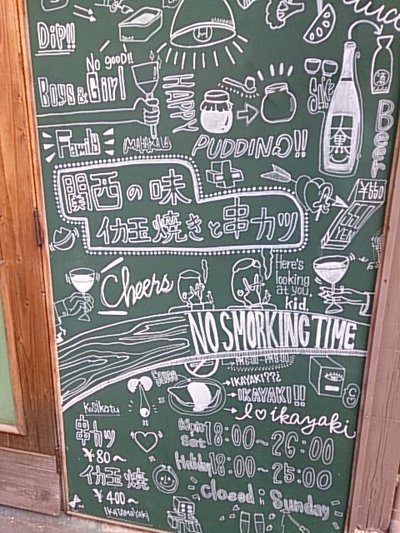 Dip!!
No good!!
Boys & Girl
HAPPY
PUDDING!!
SAKE
Beer
Family
MAHAKALA
¥550
関西の味
イカ玉焼きと串カツ
Cheers
Here's
looking
at you,
kid.
NO SMORKING TIME
IKAYAKI???
IKAYAKI!!
I ikayaki
Kusikatu
串カツ
¥80~
イカ玉焼
¥400~
IKATAMAYAKI
Mon
Sat
18:00~26:00
Holiday
18:00~25:00
closed in Sunday